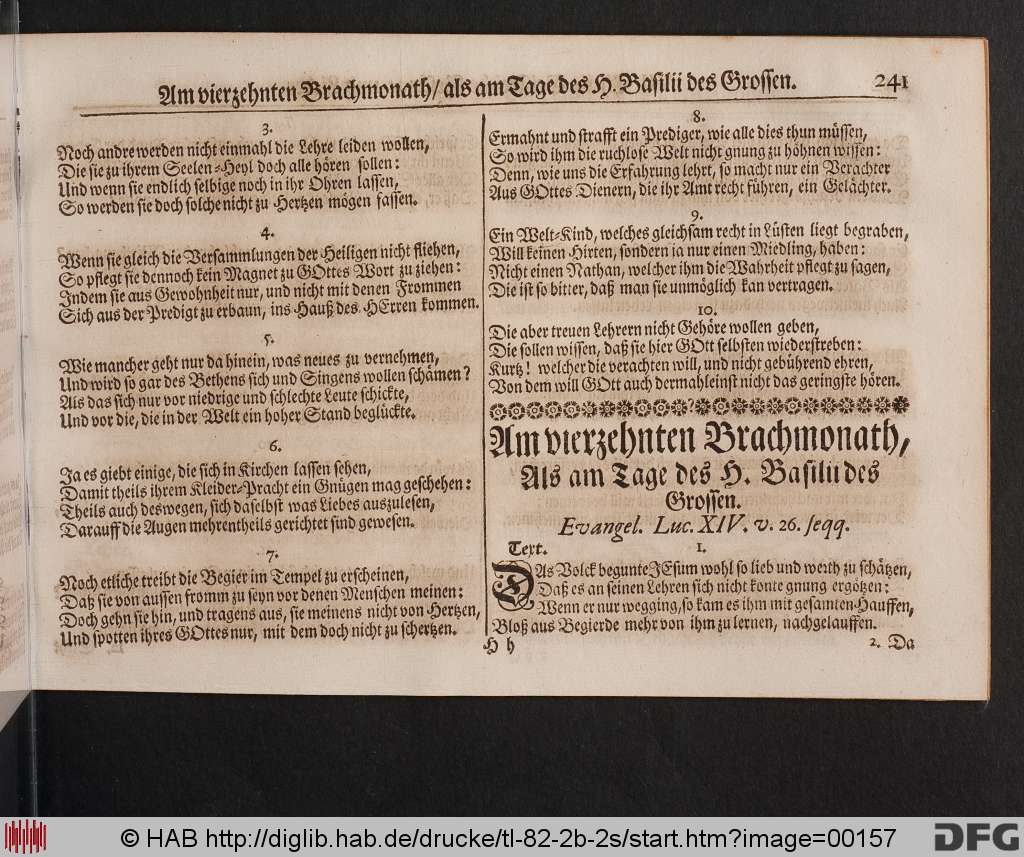 Am vierzehnten Brachmonath/ als am Tage des H. Basilii des Grossen. 241
3.
Noch andre werden nicht einmahl die Lehre leiden wollen,
Die sie zu ihrem Seelen-Heyl doch alle hören sollen:
Und wenn sie endlich selbige noch in ihr Ohren lassen,
So werden sie doch solche nicht zu Hertzen mögen fassen.
4.
Wenn sie gleich die Versammlungen der Heiligen nicht fliehen,
So pflegt sie dennoch kein Magnet zu GOttes Wort zu ziehen:
Indem sie aus Gewohnheit nur, und nicht mit denen Frommen
Sich aus der Predigt zu erbaun, ins Hauß des HErren kommen.
5.
Wie mancher geht nur da hinein, was neues zu vernehmen,
Und wird so gar des Bethens sich und Singens wollen schämen?
Als das sich nur vor niedrige und schlechte Leute schickte,
Und vor die, die in der Welt ein hoher Stand beglückte.
6.
Ja es giebt einige, die sich in Kirchen lassen sehen,
Damit theils ihrem Kleider-Pracht ein Gnügen mag geschehen:
Theils auch deswegen, sich daselbst was Liebes auszulesen,
Darauff die Augen mehrentheils gerichtet sind gewesen.
7.
Noch etliche treibt die Begier im Tempel zu erscheinen,
Daß sie von aussen fromm zu seyn vor denen Menschen meinen:
Doch gehn sie hin, und tragens aus, sie meinens nicht von Hertzen,
Und spotten ihres GOttes nur, mit dem doch nicht zu schertzen.
8.
Ermahnt und strafft ein Prediger, wie alle dies thun müssen,
So wird ihm die ruchlose Welt nicht gnung zu höhnen wissen:
Denn, wie uns die Erfahrung lehrt, so macht nur ein Verachter
Aus GOttes Dienern, die ihr Amt recht führen, ein Gelächter.
9.
Ein Welt-Kind, welches gleichsam recht in Lüsten liegt begraben,
Will keinen Hirten, sondern ja nur einen Miedling, haben:
Nicht einen Nathan, welcher ihm die Wahrheit pflegt zu sagen,
Die ist so bitter, daß man sie unmöglich kan vertragen.
10.
Die aber treuen Lehrern nicht Gehöre wollen geben,
Die sollen wissen, daß sie hier GOtt selbsten wiederstreben:
Kurtz! welcher die verachten will, und nicht gebührend ehren,
Von dem will GOtt auch dermahleinst nicht das geringste hören.
Am vierzehnten Brachmonath,
Als am Tage des H. Basilii des
Grossen.
Evangel. Luc. XIV. v. 26. seqq.
Text. 1.
DAs Volck begunte JEsum wohl so lieb und werth zu schätzen,
Daß es an seinen Lehren sich nicht konte gnung ergötzen:
Wenn er nur wegging, so kam es ihm mit gesamten Hauffen,
Bloß aus Begierde mehr von ihm zu lernen, nachgelauffen.
H h 2. Da
© HAB http://diglib.hab.de/drucke/tl-82-2b-2s/start.htm?image=00157 DFG